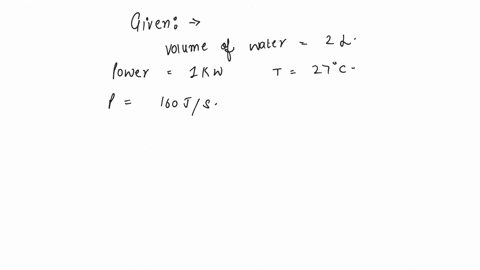 Given: →
volume of water = 2 L.
Power = 1 KW T = 27°C.
P = 160 J/s.